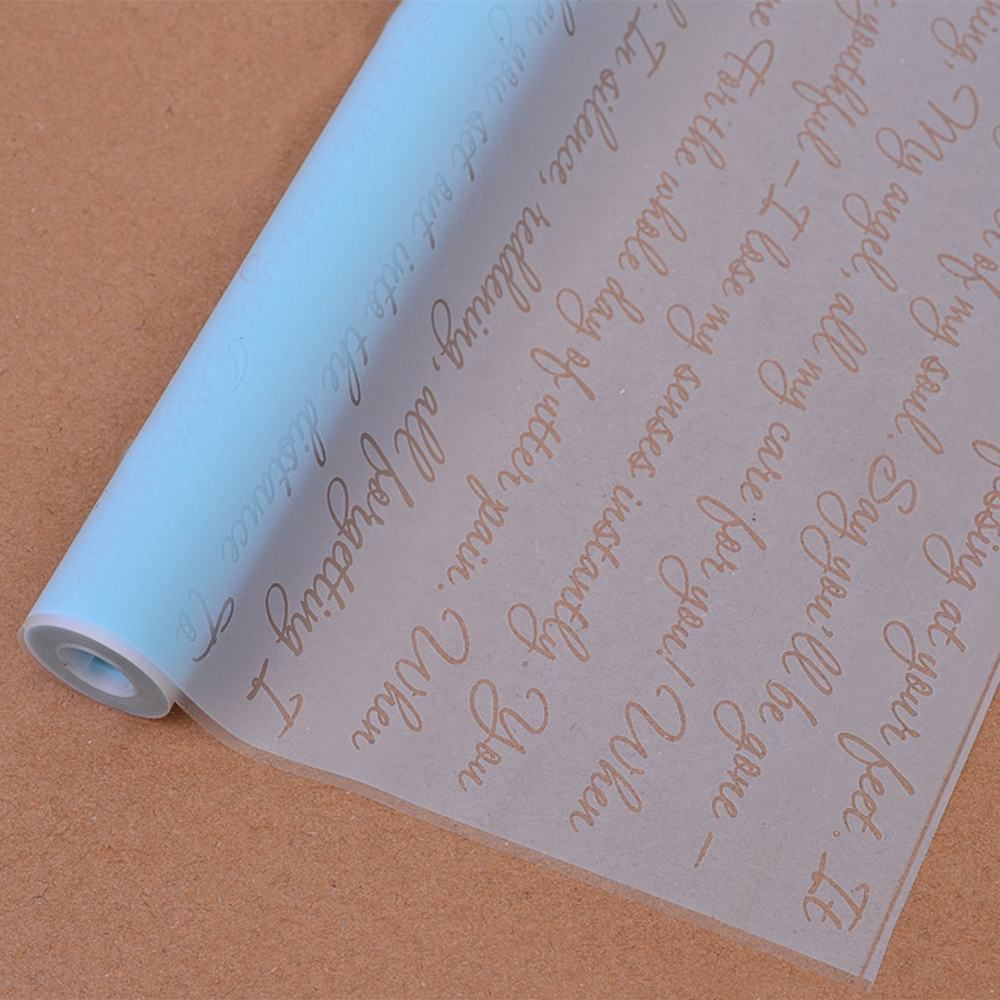 at your feet. It
of my soul. Say you'll be gone –
My angel, all my care for you! When
youthful – I lose my senses instantly. You
For the whole day of utter pain. When
In silence, reddening, all forgetting I
you set out into the distance To